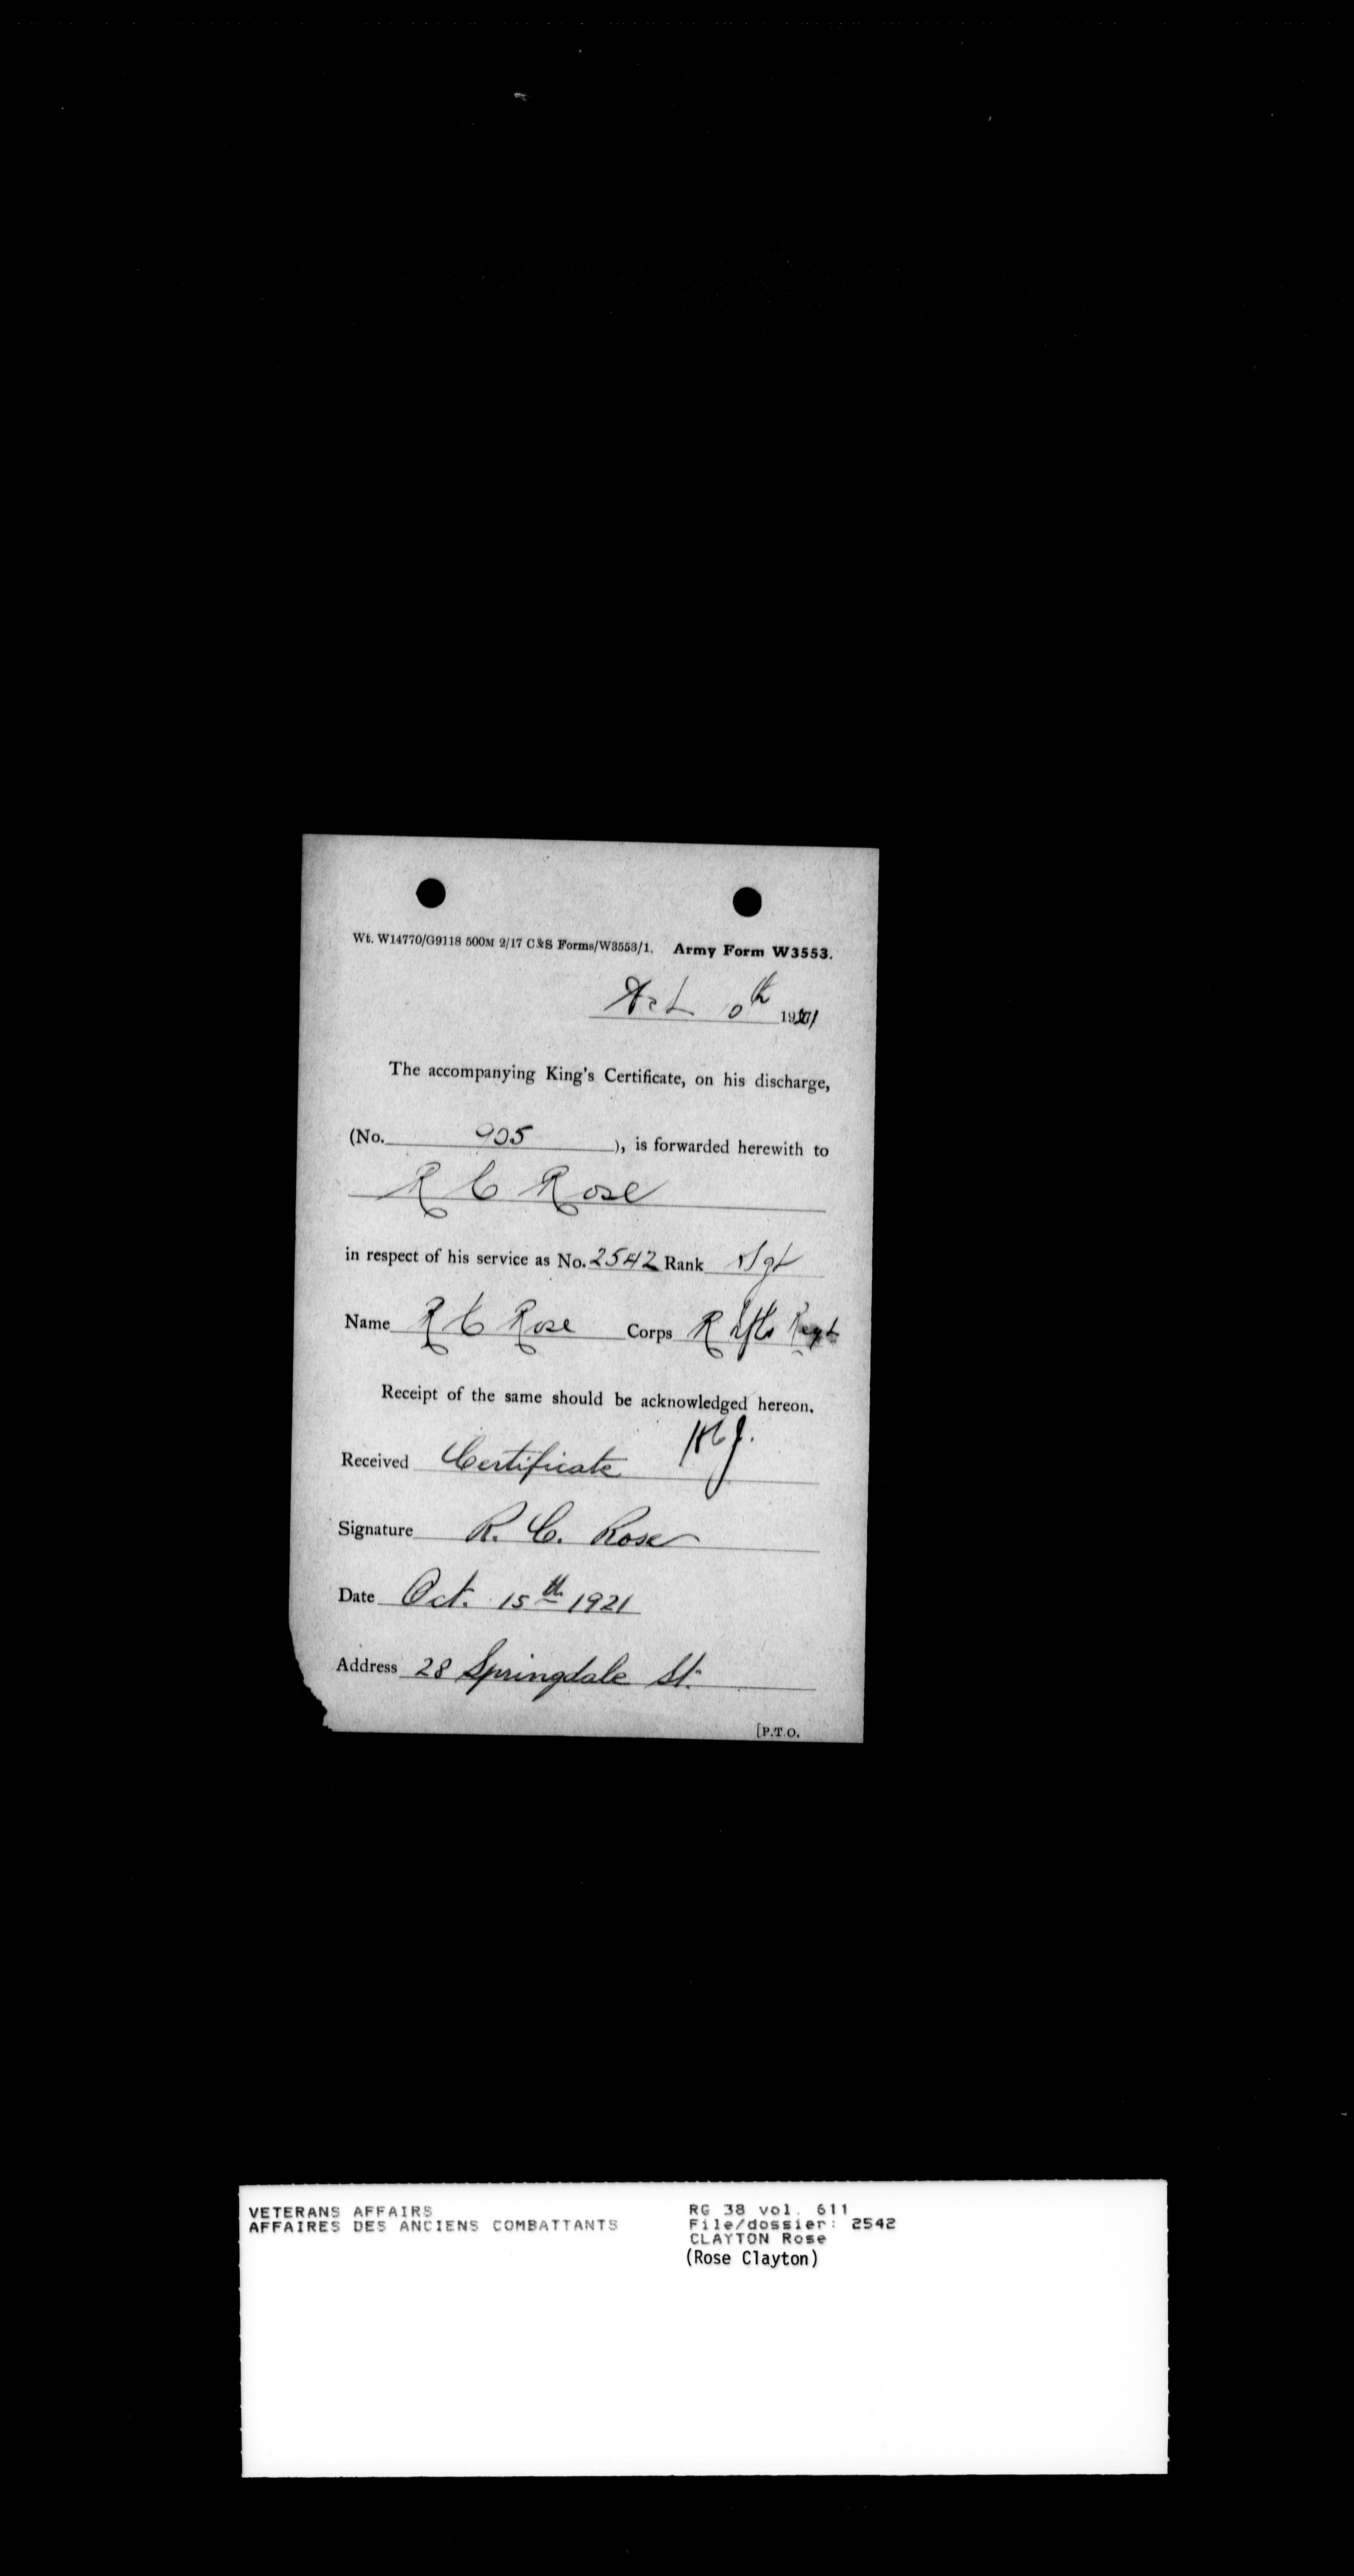 Wt. W14770/G9118 500M 2/17 C&S Forms/W3553/1. Army Form W3553.
Oct 10th 1921
The accompanying King's Certificate, on his discharge,
(No. 905 ), is forwarded herewith to
R C Rose
in respect of his service as No. 2542 Rank Sgt
Name R C Rose Corps R Nfld Regt
Receipt of the same should be acknowledged hereon.
Received Certificate
Signature R. C. Rose
Date Oct. 15th 1921
Address 28 Springdale St.
[P.T.O.
VETERANS AFFAIRS
AFFAIRES DES ANCIENS COMBATTANTS
RG 38 vol. 611
File/dossier: 2542
CLAYTON Rose
(Rose Clayton)